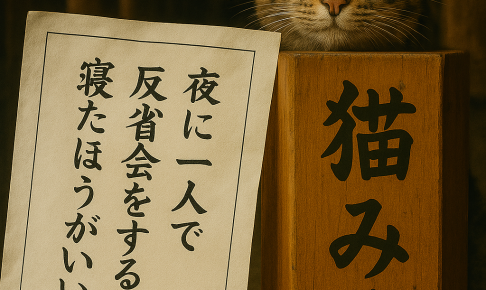 夜に一人で
反省会をする
寝たほうがいい
猫み